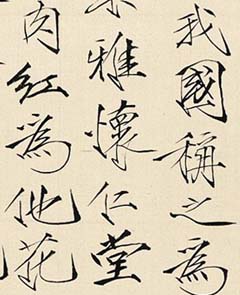 我國稱之為
雅懷仁堂
肉紅為他花